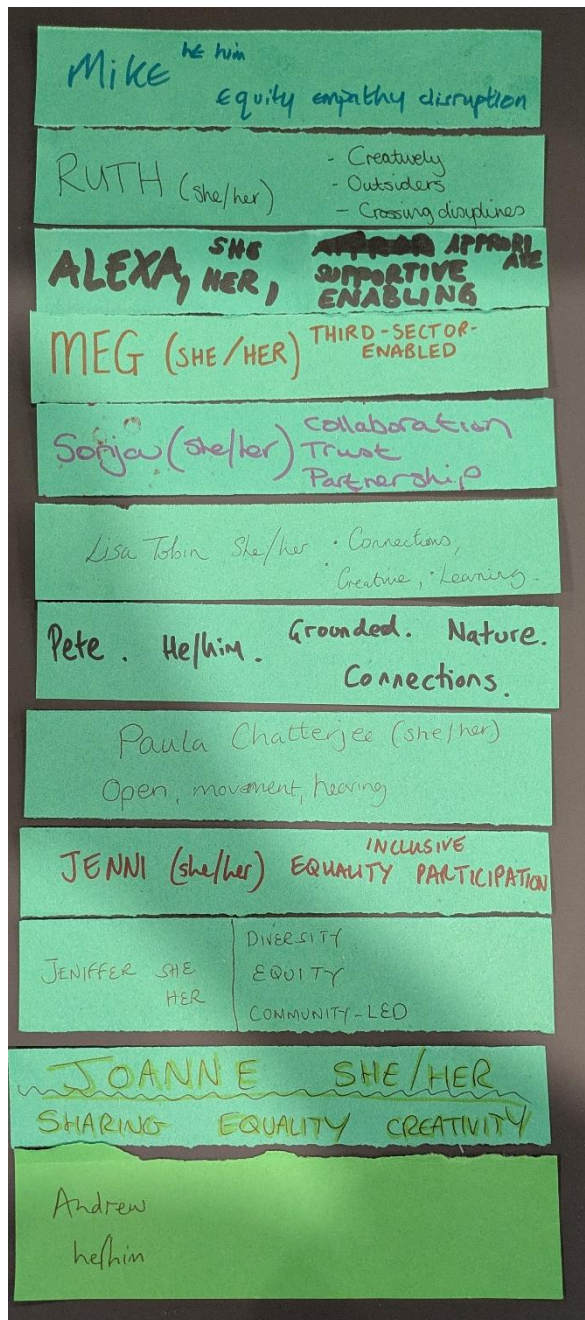 Mike he him
Equity empathy disruption
RUTH (she/her)
- Creatively
- Outsiders
- Crossing disciplines
ALEXA, SHE HER,
APPROPRIATE
SUPPORTIVE
ENABLING
MEG (SHE/HER) THIRD-SECTOR-
ENABLED
Sonja (she/her) Collaboration
Trust
Partnership
Lisa Tobin She/her · Connections,
· Creative, · Learning.
Pete. He/him. Grounded. Nature.
Connections.
Paula Chatterjee (she/her)
Open, movement, hearing
JENNI (she/her) INCLUSIVE
EQUALITY PARTICIPATION
JENIFFER SHE
HER
DIVERSITY
EQUITY
COMMUNITY-LED
JOANNE SHE/HER
SHARING EQUALITY CREATIVITY
Andrew
he/him